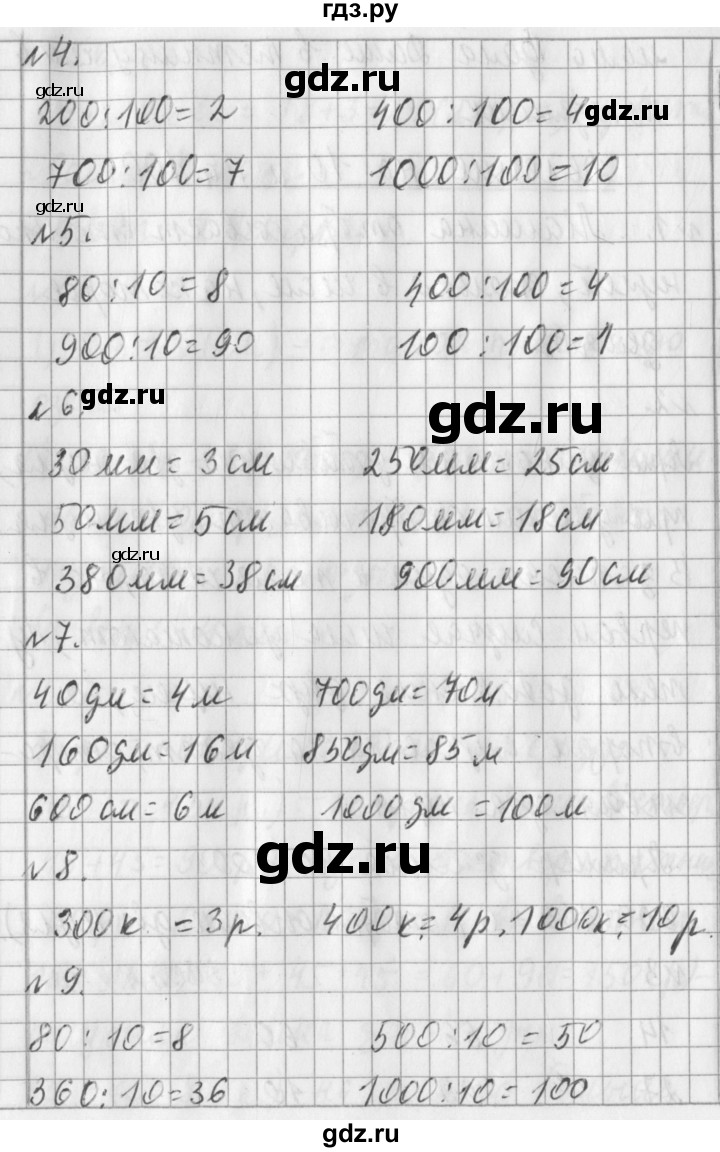 гдз.ру
№4.
gdz.ru
gdz.ru
200:100=2 400:100=4
gdz.ru
700:100=7 1000:100=10
gdz.ru
№5.
80:10=8 400:100=4
900:10=90 100:100=1
№6.
gdz.ru
gdz.ru
30мм=3см 250мм=25см
50мм=5см 180мм=18см
gdz.ru
380мм=38см 900мм=90см
№7.
40дм=4м 700дм=70м
160дм=16м 850дм=85м
600см=6м 1000дм=100м
gdz.ru
№8.
300к.=3р. 400к.=4р. 1000к.=10р.
№9.
80:10=8 500:10=50
360:10=36 1000:10=100
gdz.ru